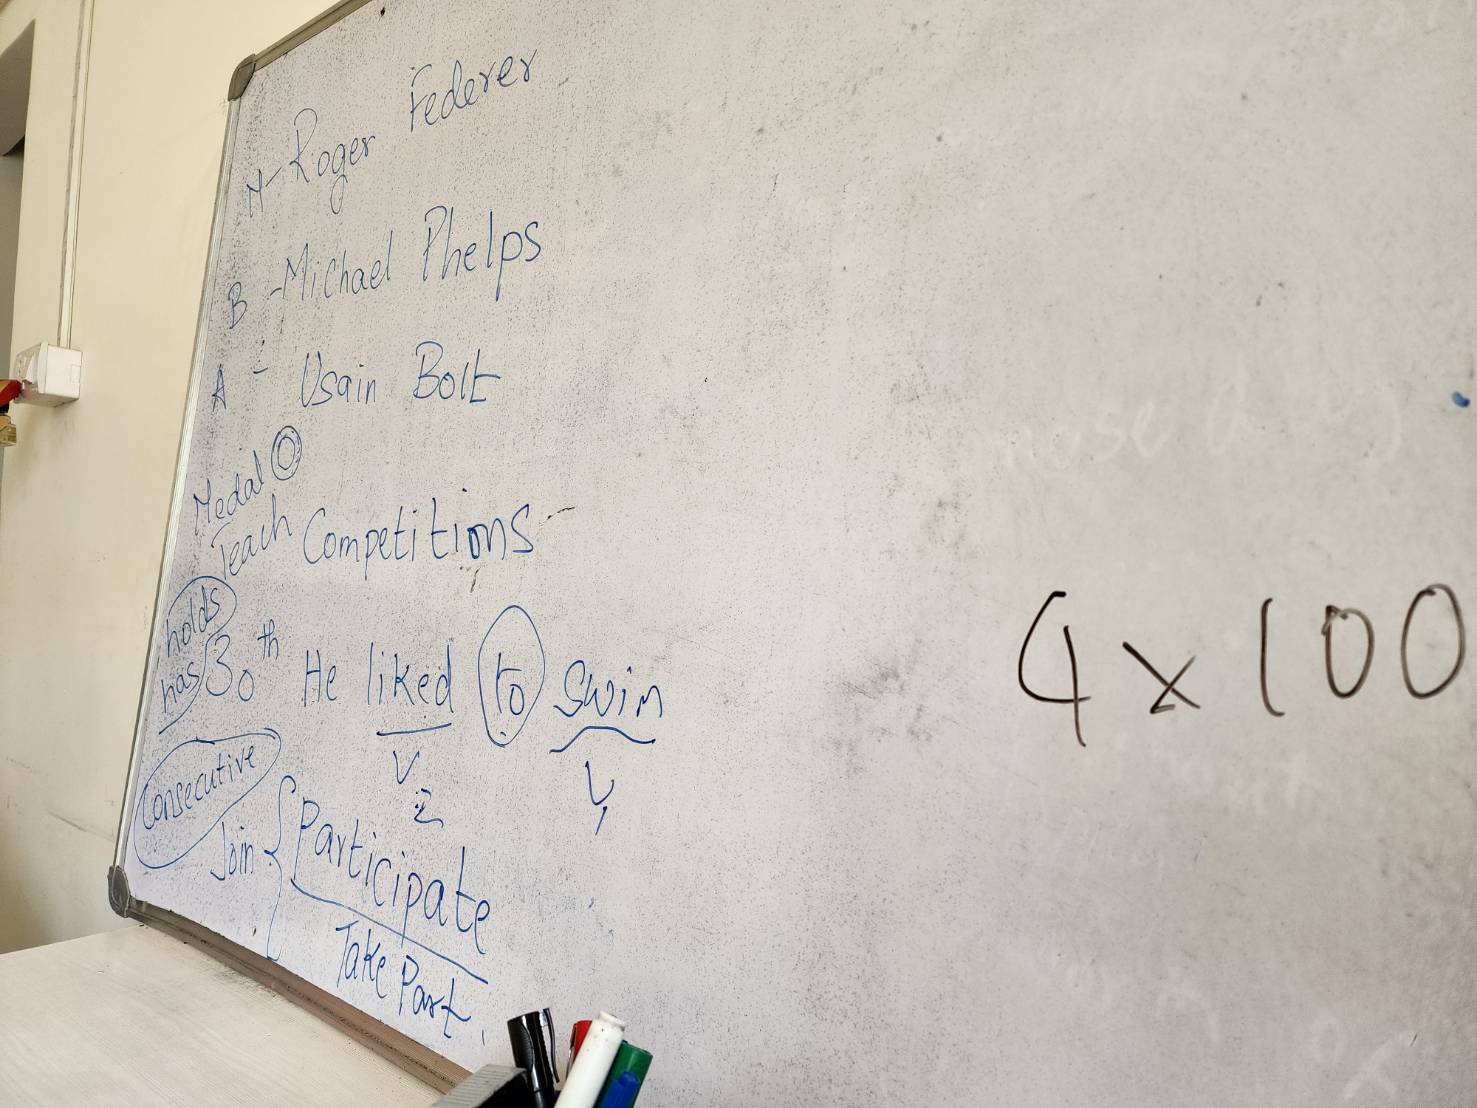 M- Roger Federer
B - Michael Phelps
A - Usain Bolt
Medal
Teach Competitions
holds
has 30th He liked to swim
V2 V1
Consecutive
Join { Participate
Take Part.
4 x 100